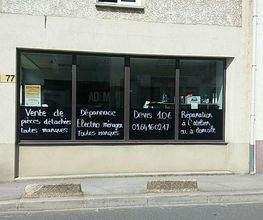 77
ADEM
Vente de
pièces détachées
toutes marques
Dépannage
Electro ménager
Toutes marques
Devis 10€
01.64.16.02.47
Réparation
à l'atelier
ou à domicile